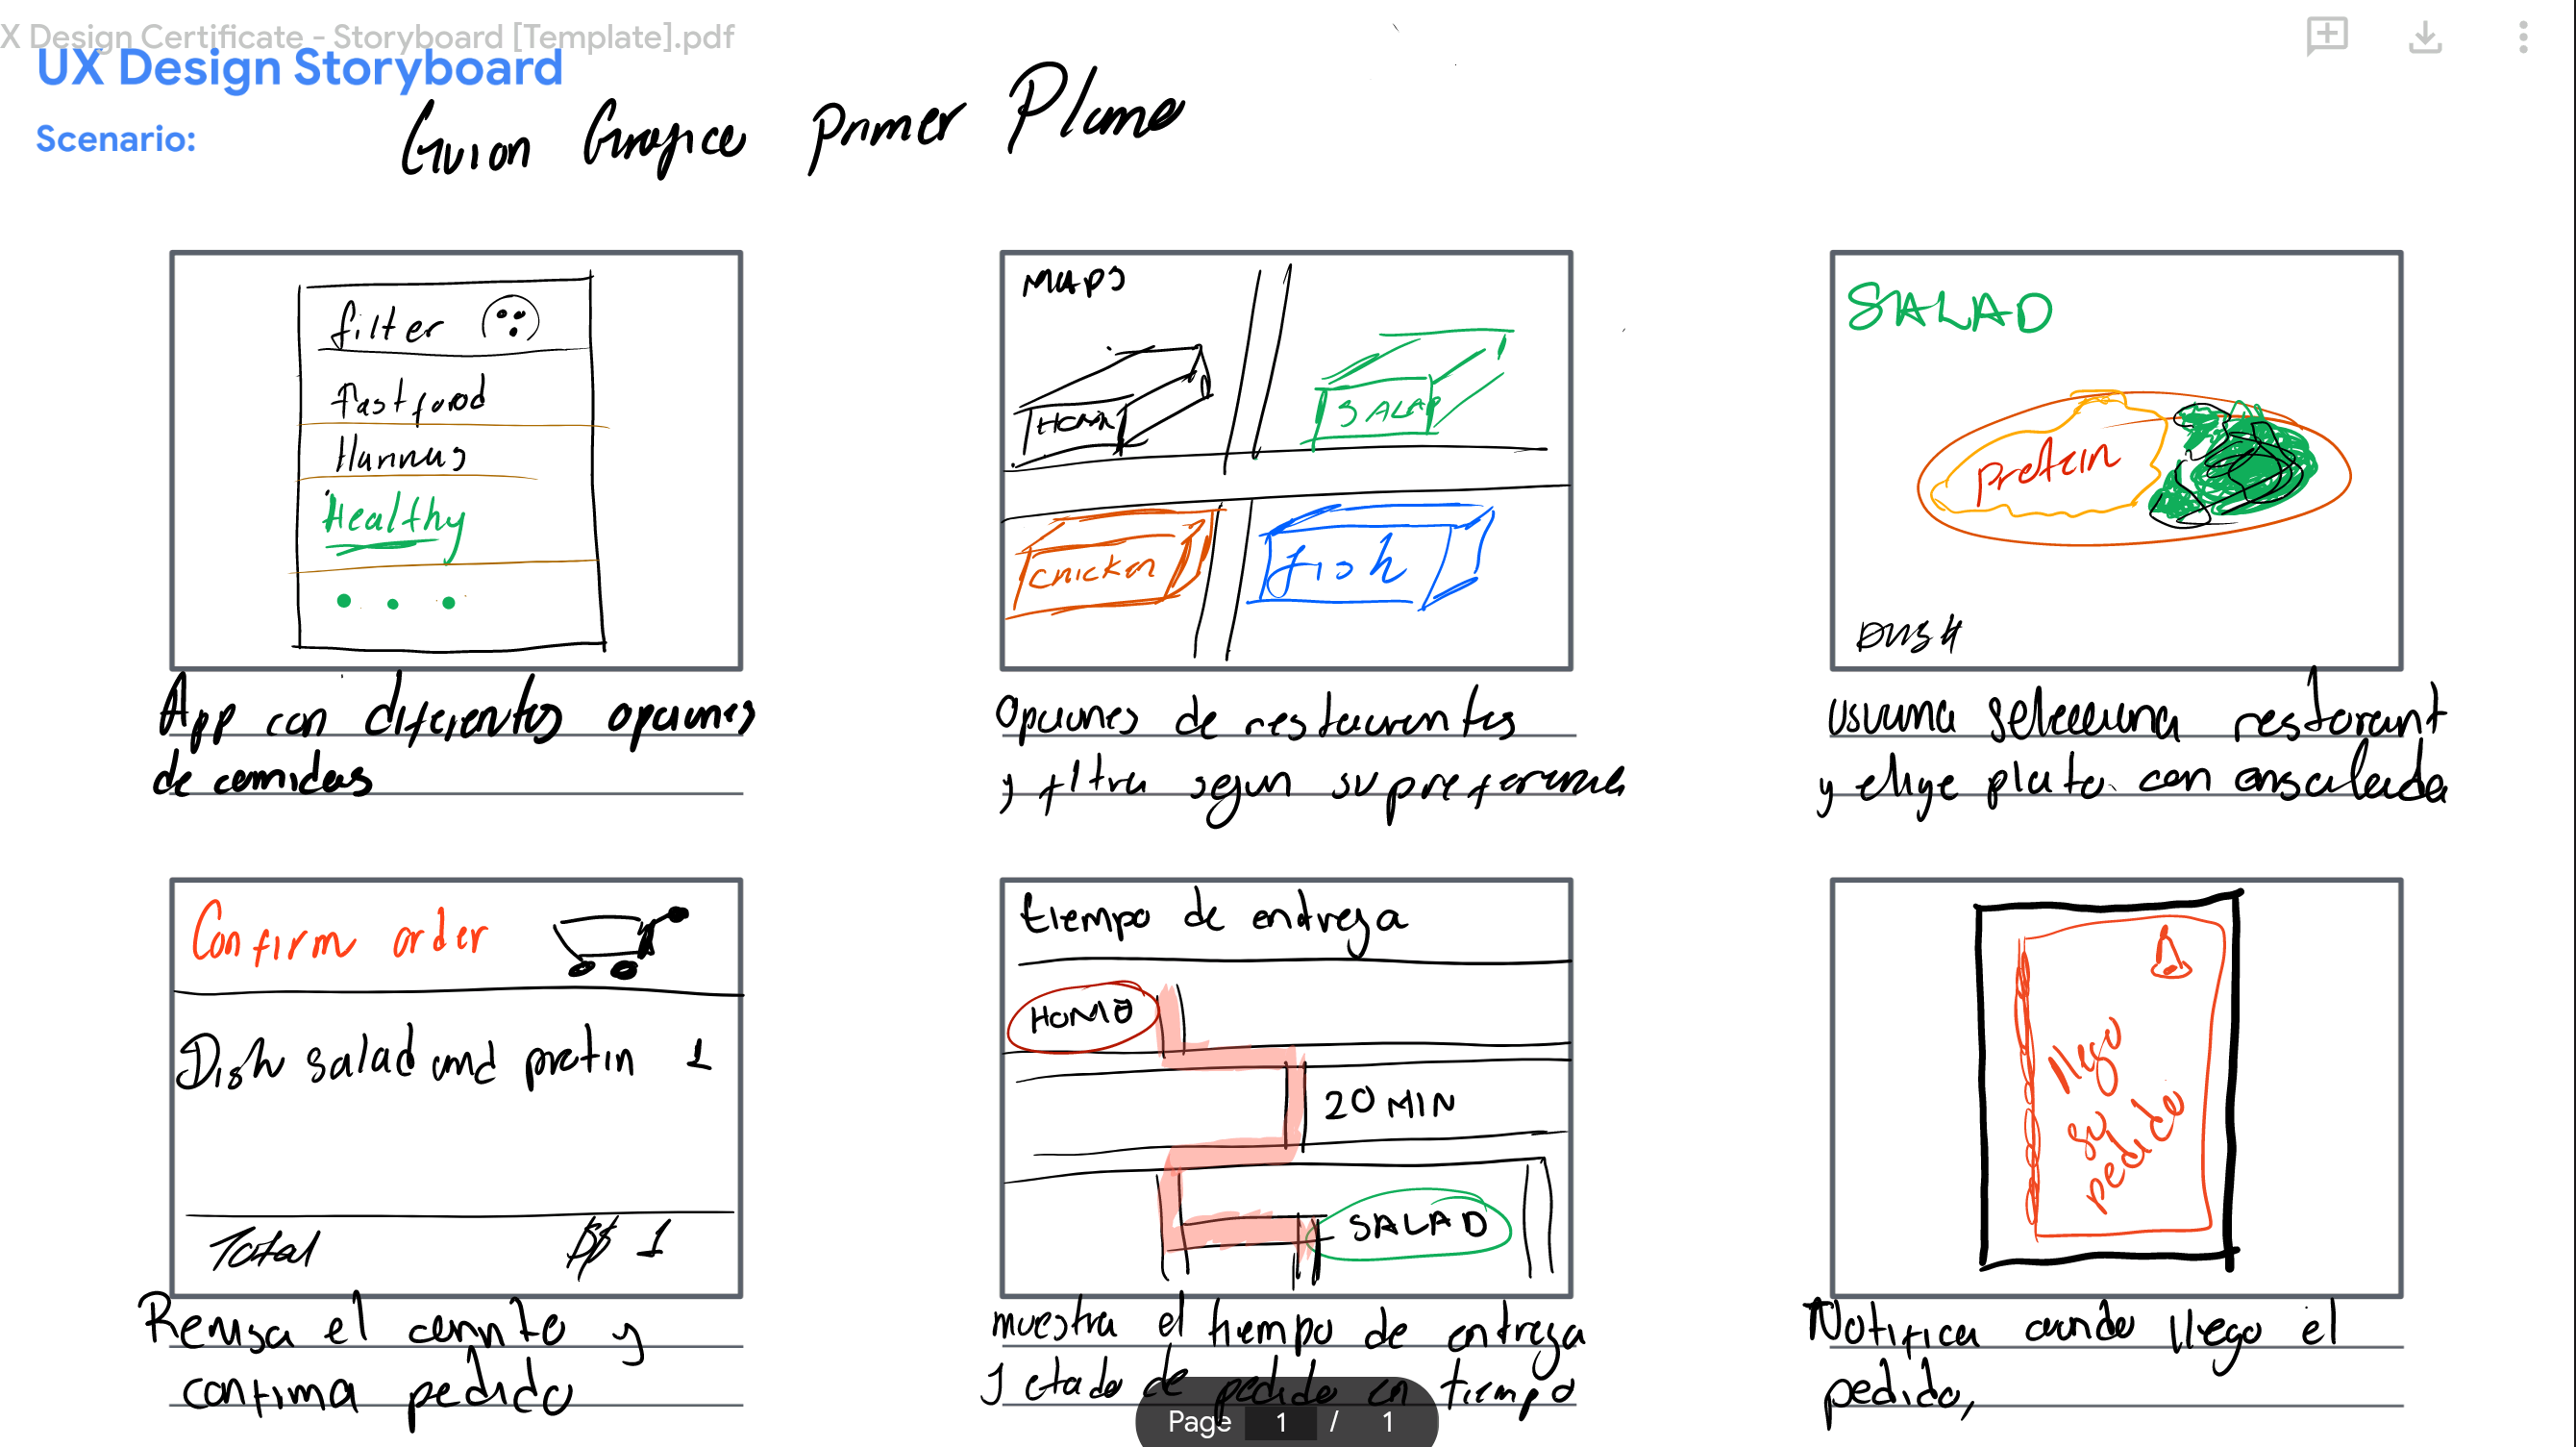 X Design Certificate - Storyboard [Template].pdf
UX Design Storyboard
Scenario:
Guion Grafico Primer Plano
filter
fastfood
Hummus
Healthy
MAPS
HOME
SALAD
CHICKEN
fish
SALAD
Protein
DISH
App con diferentes opciones
de comidas
Opciones de restaurantes
y filtra segun su preferencia
usuaria selecciona restorant
y elige plato con ensalada
Confirm order
Dish salad and protin 1
Total $$ 1
tiempo de entrega
HOME
20 MIN
SALAD
llego
su
pedido
Revisa el carrito y
confima pedido
muestra el tiempo de entrega
y etado de pedido en tiempo
Notifica cuando llego el
pedido,
Page 1 / 1